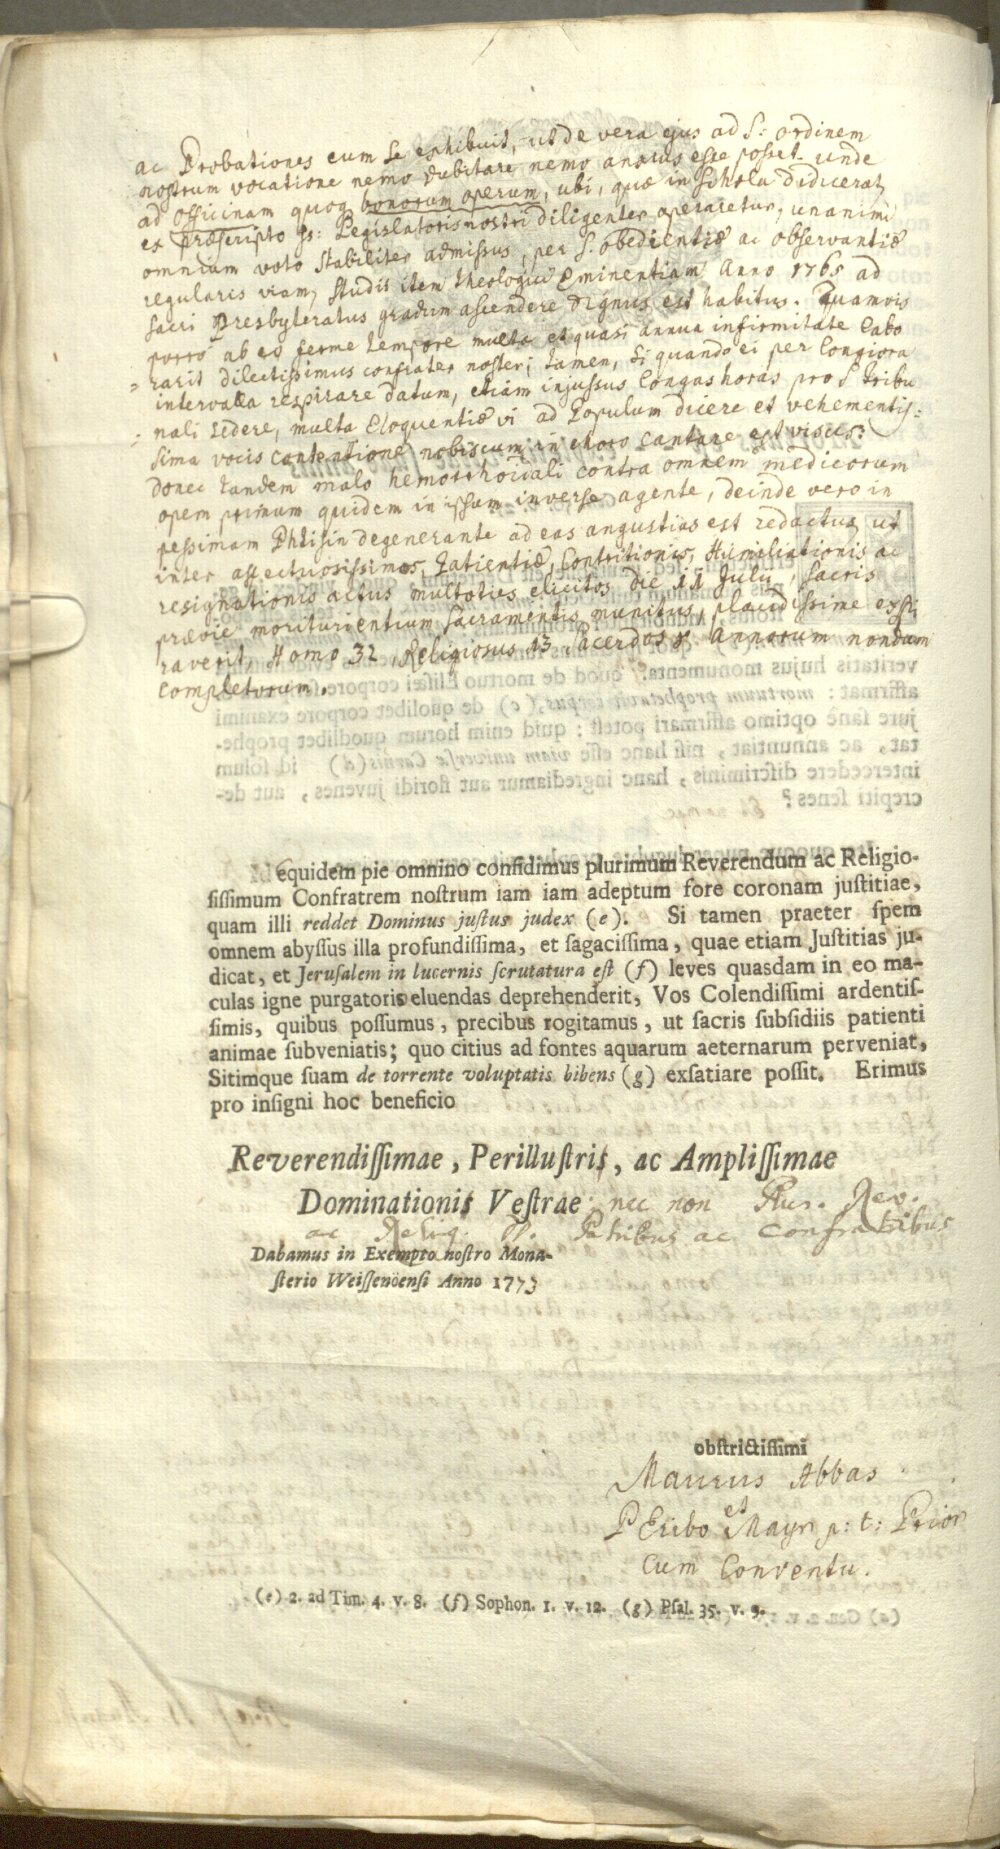 ac Probationes eum se exhibuit, ut de vera ejus ad S: ordinem
nostrum vocatione nemo dubitare nemo anxius esse posset. unde
ad officinam quoq bonorum operum, ubi, quæ in schola didicerat,
ex præscripto ss: Legislatoris nostri diligenter operaretur, unanimi
omnium voto stabiliter admissus, per S. obedientiæ ac observantiæ
regularis viam, studii item theologici eminentiam Anno 1765 ad
sacri Presbyteratus gradum ascendere dignus est habitus. Quamvis
porro ab eo ferme tempore multa et quasi annua infirmitate labo
rarit dilectissimus confrater noster; tamen, si quando ei per longiora
intervalla respirare datum, etiam injussus longas horas pro S. tribu
nali sedere, multa Eloquentiæ vi ad Populum dicere et vehementis:
sima vocis contentione nobiscum in choro cantare est visus:
donec tandem malo hemorrhoidali contra omnem medicorum
opem primum quidem in ipsum inverse agente, deinde vero in
pessimam Phtisin degenerante ad eas angustias est redactus, ut
inter affectuosissimos, Patientiæ, Contritionis, Humiliationis ac
resignationis actus multoties elicitos die 11 Julii, sacris
prævie morituientium sacramentis munitus, placidissime exspi
raverit, Homo 32, Religiosus 13 Sacerdos 8 Annorum nondum
completorum.
equidem pie omnino confidimus plurimum Reverendum ac Religio-
sissimum Confratrem nostrum iam iam adeptum fore coronam justitiae,
quam illi reddet Dominus justus judex (e). Si tamen praeter spem
omnem abyssus illa profundissima, et sagacissima, quae etiam Justitias ju-
dicat, et Jerusalem in lucernis scrutatura est (f) leves quasdam in eo ma-
culas igne purgatoris eluendas deprehenderit, Vos Colendissimi ardentis-
simis, quibus possumus, precibus rogitamus, ut sacris subsidiis patienti
animae subveniatis; quo citius ad fontes aquarum aeternarum perveniat,
Sitimque suam de torrente voluptatis bibens (g) exsatiare possit. Erimus
pro insigni hoc beneficio
Reverendissimae, Perillustris, ac Amplissimae
Dominationis Vestrae nec non Plur. Rev.
ac Relig. PP. Patribus ac Confratribus
Dabamus in Exempto nostro Mona-
sterio Weissenöensi Anno 1773
obstrictissimi
Maurus Abbas
et
P Eribo Mayr p: t: Prior
cum Conventu.
(e) 2. ad Tim. 4. v. 8. (f) Sophon. 1. v. 12. (g) Psal. 35. v. 9.